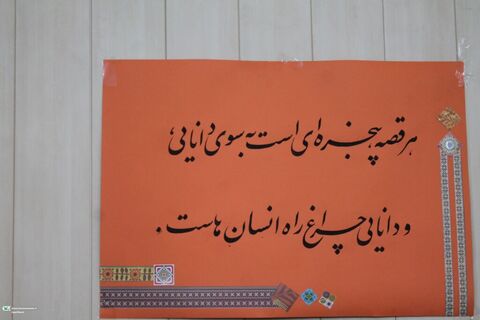 هر قصه پنجره‌ای است به سوی دانایی،
و دانایی چراغ راه انسان هاست.